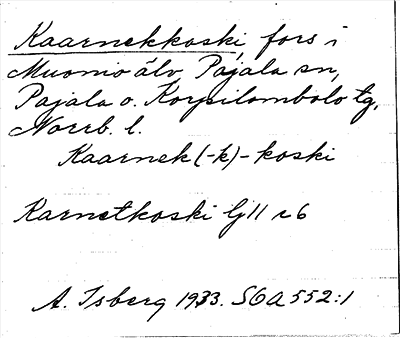 Kaarnekkoski, fors i
Muonio älv, Pajala sn,
Pajala o. Korpilombolo tg,
Norrb. l.
Kaarnek(-k)-koski
Karnetkoski Gj11 r6
A. Isberg 1933. SOA 552:1